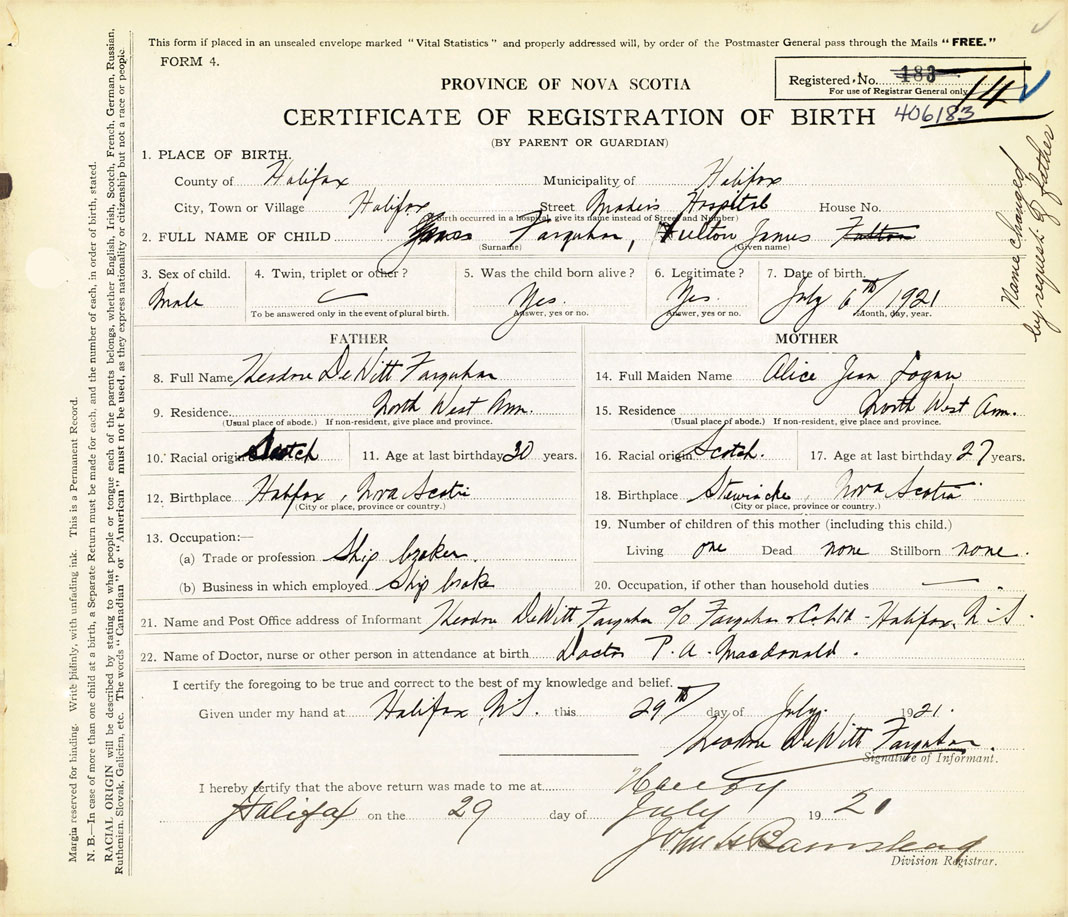 This form if placed in an unsealed envelope marked "Vital Statistics" and properly addressed will, by order of the Postmaster General pass through the Mails "FREE."
FORM 4.
Registered No. 183 14
For use of Registrar General only
406183
PROVINCE OF NOVA SCOTIA
CERTIFICATE OF REGISTRATION OF BIRTH
(BY PARENT OR GUARDIAN)
1. PLACE OF BIRTH.
County of Halifax Municipality of Halifax
City, Town or Village Halifax Street Hospital House No.
birth occurred in a hospital, give its name instead of Street and Number)
2. FULL NAME OF CHILD Farquhar, Fulton James Fulton
(Surname) (Given name)
3. Sex of child. Male
4. Twin, triplet or other?
To be answered only in the event of plural birth.
5. Was the child born alive? Yes.
Answer, yes or no.
6. Legitimate? Yes.
Answer, yes or no.
7. Date of birth. July 6th 1921
Month, day, year.
FATHER
8. Full Name Theodore DeWitt Farquhar
9. Residence North West Arm.
(Usual place of abode.) If non-resident, give place and province.
10. Racial origin Scotch 11. Age at last birthday 30 years.
12. Birthplace Halifax, Nova Scotia
(City or place, province or country.)
13. Occupation:—
(a) Trade or profession Ship broker
(b) Business in which employed Ship broke
MOTHER
14. Full Maiden Name Alice Jean Logan
15. Residence North West Arm.
(Usual place of abode.) If non-resident, give place and province.
16. Racial origin Scotch. 17. Age at last birthday 27 years.
18. Birthplace Stewiacke, Nova Scotia
(City or place, province or country.)
19. Number of children of this mother (including this child.)
Living one Dead none Stillborn none.
20. Occupation, if other than household duties —
21. Name and Post Office address of Informant Theodore DeWitt Farquhar c/o Farquhar & Co Ltd - Halifax, N.S.
22. Name of Doctor, nurse or other person in attendance at birth Doctor P. A. Macdonald.
I certify the foregoing to be true and correct to the best of my knowledge and belief.
Given under my hand at Halifax, N.S. this 29th day of July. 1921.
Theodore DeWitt Farquhar.
Signature of Informant.
I hereby certify that the above return was made to me at
Halifax on the 29 day of July 1921
John H Barnstead
Division Registrar.
Name changed
by request of father
Margin reserved for binding. Write plainly, with unfading ink. This is a Permanent Record.
N. B.—In case of more than one child at a birth, a Separate Return must be made for each, and the number of each, in order of birth, stated.
RACIAL ORIGIN will be described by stating to what people or tongue each of the parents belongs, whether English, Irish, Scotch, French, German, Russian,
Ruthenian, Slovak, Galician, etc. The words "Canadian" or "American" must not be used, as they express nationality or citizenship but not a race or people.